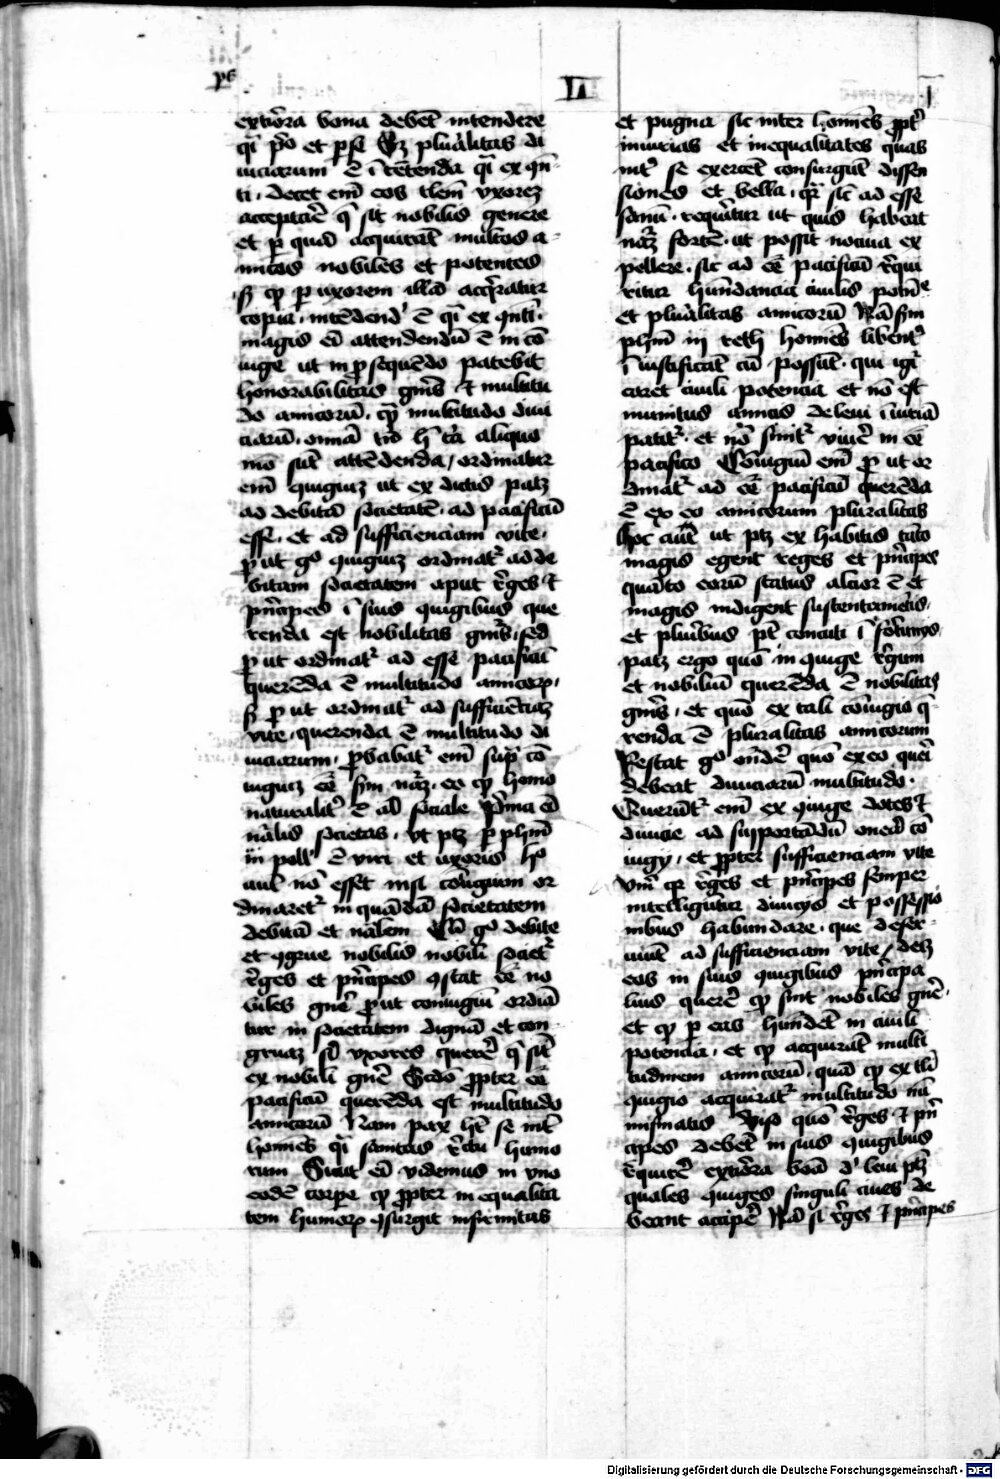 ps
II
I
extiora bona debet intendere
qi po et p se Sz pluralitas di
uiciarum e i tetenda qi ex qn
ti. Decet em eos tlem vxorez
accepture q sit nobilis genere
et p qua acquirat multos a
micos nobiles et potentes
s q p uxorem illa acqratur
copia. intedend e qi ex qnti.
magis ei attendendu e in co
iuge ut in p sequedo patebit
honorabilitas gnis et multitu
do amicoru. q multitudo diui
ciaru. omia tn h tra aliquo
mo sut attedenda / ordinatur
em quigiuz ut ex dictis patz
ad debita societate. ad pacificu
esse. et ad sufficienciam vite.
p ut go quigiuz ordinat ad de
bitam societatem aput rges et
pncipes i suis quigibus que
renda est nobilitas gnis. sed
p ut ordinat ad esse pacificu
querenda e multitudo amicorum,
s p ut ordinat ad sufficietiaz
vite. querenda e multitudo di
uiciarum. pbabat em sup co
iugiuz ee sm naz. eo q homo
naturalit e aial sociale Pma ei
nalis societas. ut ptz p phm
in poll e viri et uxoris ho
aut no esset nisi coiugium or
dinaret in quada societatem
debita et nalem Cu go debite
et qgrue nobilis nobili societ
rges et pncipes qstat ee no
biles gne put coniugiu ordia
tur in societatem digna et con
gruaz si vxores quere q sit
ex nobili gne Scdo ppter ee
pacificu querenda est multitudo
amicoru Nam pax ht se int
homies qi sanitas rctu humo
rum Sicut ei videmus in vno
eode corpe q ppter in equalita
tem humorum qsurgit infirmitas
et pugna sic inter homies ppt
iniurias et inequalitates quas
int se exercet consurgut dissen
siones et bella. qr sic ad esse
sanu. requirtur ut quis habeat
naz forte. ut possit nociua ex
pellere. sic ad ee pacificu requi
ritur habundancia ciuilis potne
et pluralitas amicoru Na sm
phm in reth homies libent
iiustificat cu possut. qui igi
caret ciuili potencia et no est
munitus amicis de leui iiuria
patit. et no sinit viuere in ee
pacifico Coniugiu em p ut or
dinat ad ee pacificu querenda
e ex eo amicorum pluralitas
Hoc aute ut ptz ex habitis tato
magis egent reges et pncipes
quato eoru status alcior e et
magis indigent sustentametis.
et pluribus pt concuti i fortunys
patz ergo quo in quige rgum
et nobiliu querenda e nobilitas
gnis. et quo ex tali coiugio q
renda e pluralitas amicorum
Restat go ondere quo ex eo queri
debeat diuiciaru multitudo.
Querut em ex quige dotes et
diuicie ad supportadu onera co
iugy. et ppter sufficienciam vite
Vm qr rges et pncipes semper
intelliguntur diuicys et possessio
nibus habundare. que defer
uiut ad sufficienciam vite / debz
eos in suis quigibus pncipa
lius quere q sint nobiles gne.
et q p eas habudet in ciuili
potencia. et q acquirat multi
tudinem amicoru. qua q ex tli
quigio acquirat multitudo nu
mismatis Viso quo rges et pn
cipes debet in suis quigibus
requirere extiora boa de leui ptz
quales quiges singuli ciues de
beant accipe Na si rges et pncipes
Digitalisierung gefördert durch die Deutsche Forschungsgemeinschaft - DFG